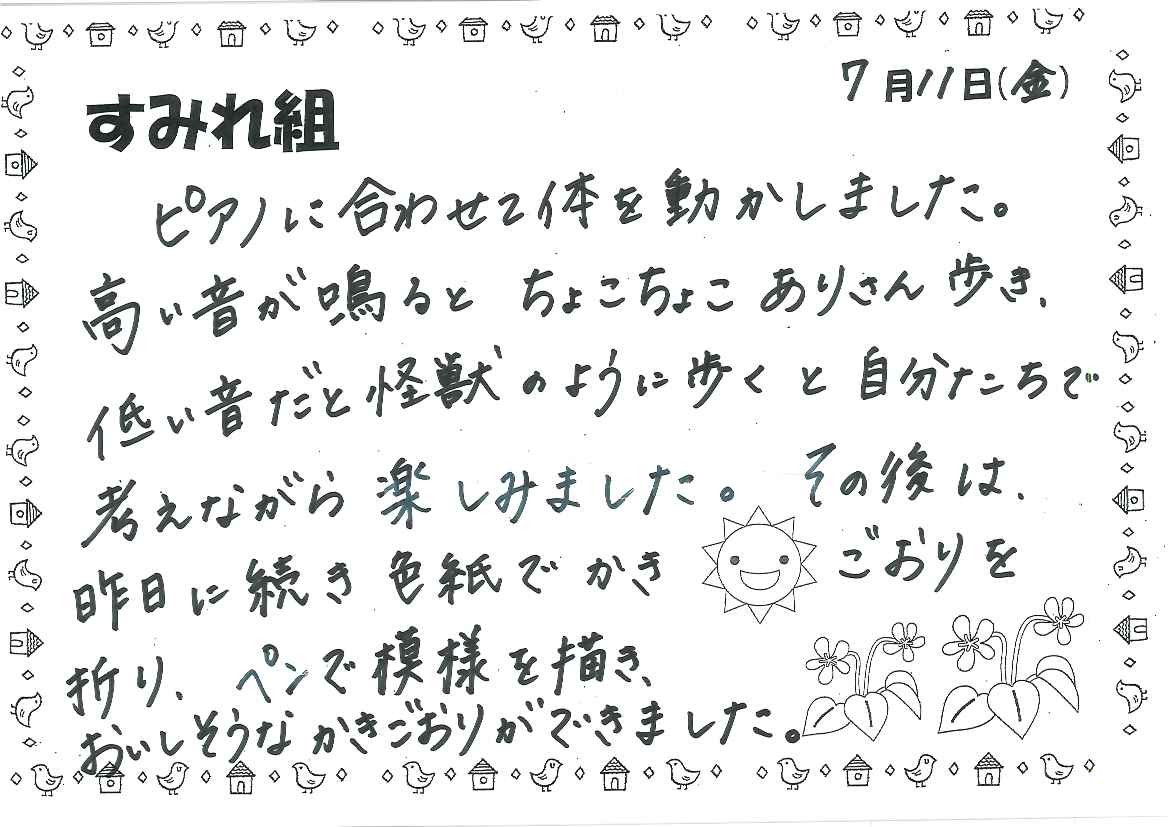 7月11日(金)
すみれ組
ピアノに合わせて体を動かしました。
高い音が鳴ると ちょこちょこ ありさん 歩き、
低い音だと怪獣のように歩くと自分たちで
考えながら楽しみました。その後は、
昨日に続き色紙でかき ごおりを
折り、ペンで模様を描き、
おいしそうなかきごおりができました。